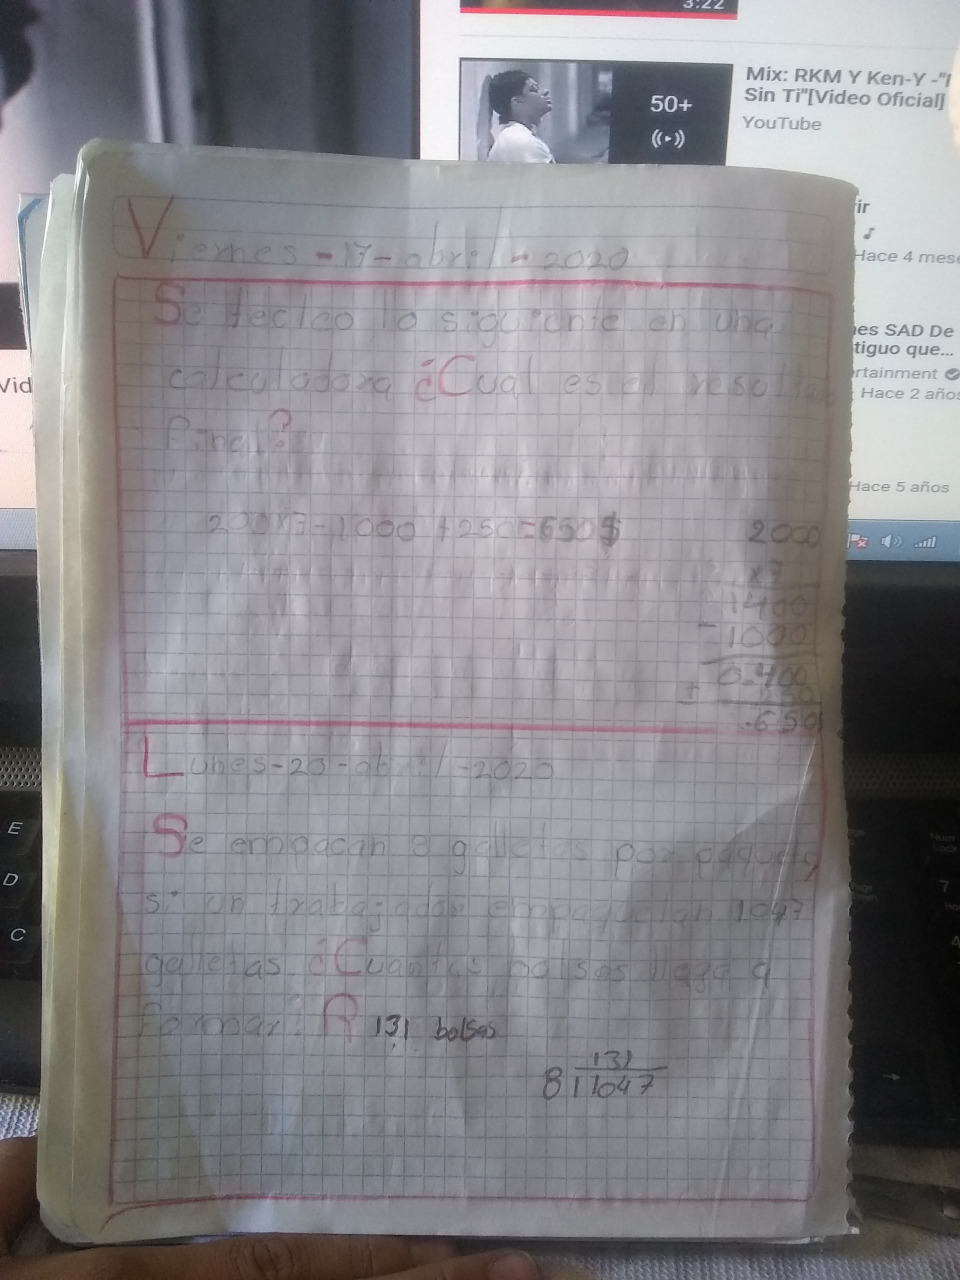 3:22
Mix: RKM Y Ken-Y -"
Sin Ti"[Video Oficial]
YouTube
50+
ir
Hace 4 mese
nes SAD De
tiguo que...
rtainment
Hace 2 años
Hace 5 años
Vid
Viernes - 17 - abril - 2020
Se tecleo lo siguiente en una
calculadora ¿Cual es el resultado
final?
200x7-1000+250=650$
2000
x7
1400
-1000
0-400
+
-650
Lunes-20-abril-2020
Se empacan 8 galletas por paquete,
si un trabajador empaquetan 1047
galletas ¿Cuantas bolsas llega a
formar? R 131 bolsas
131
8 1047
E
D
C
Num
Lock
7